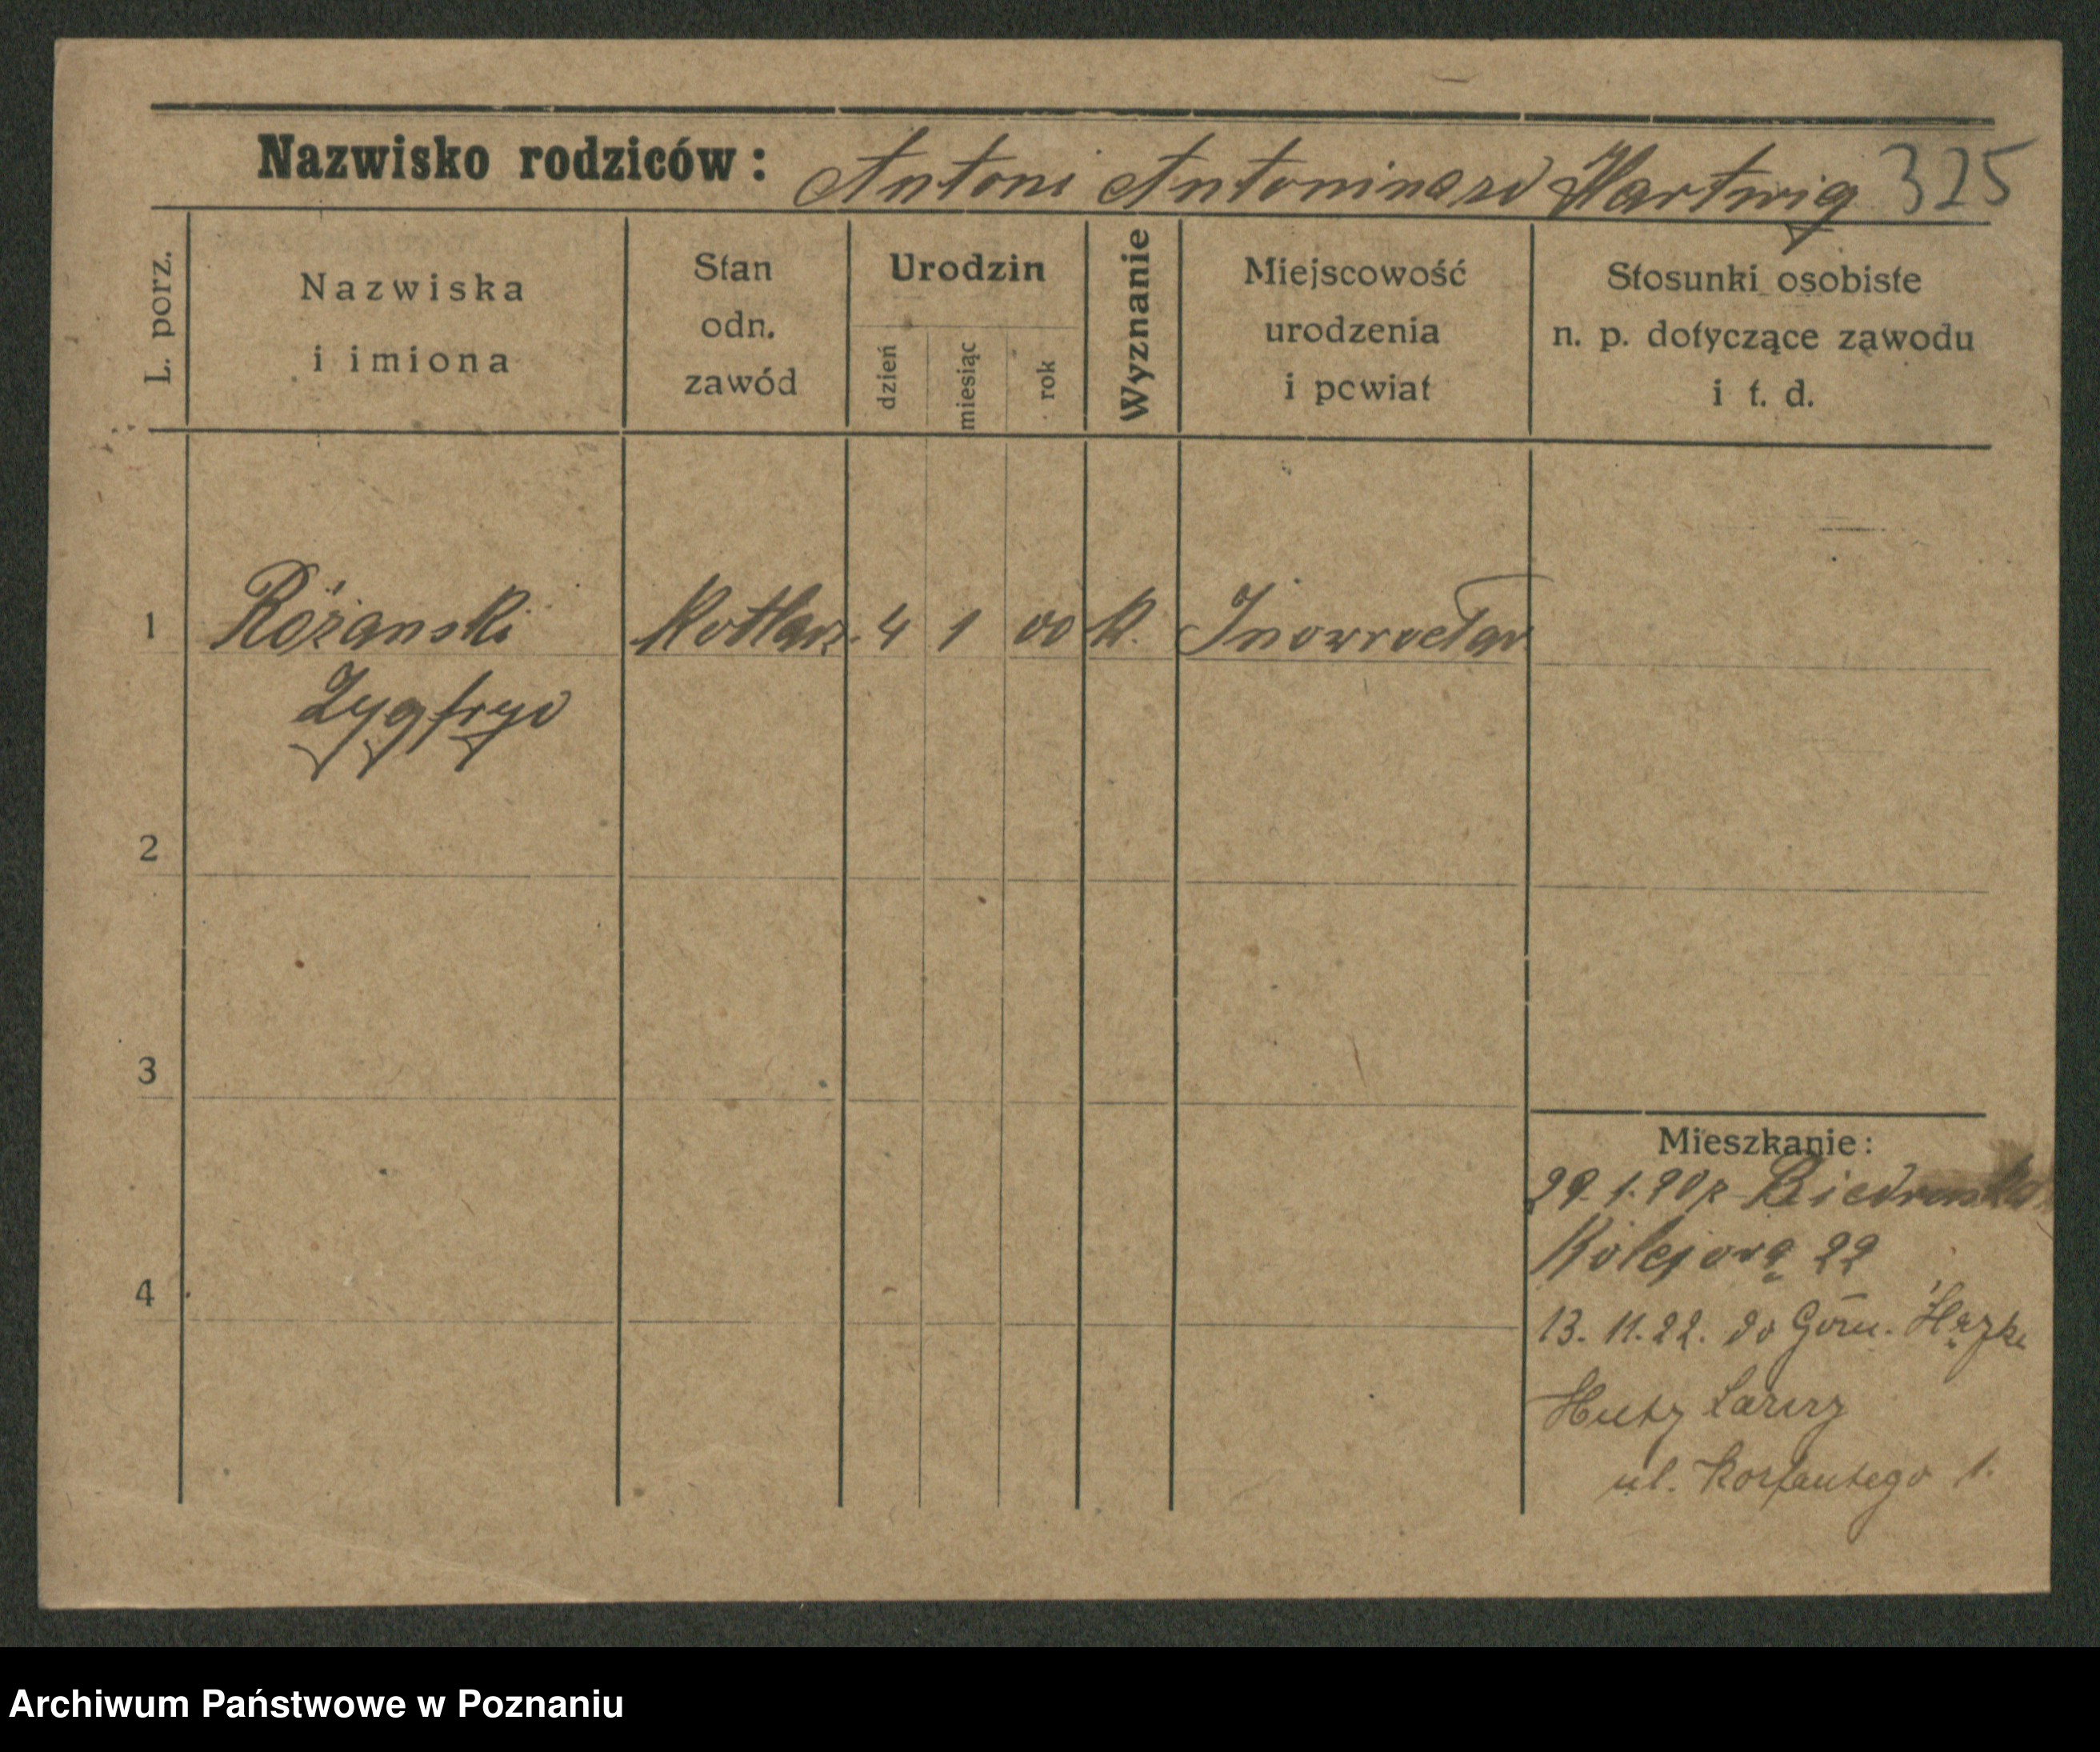 Nazwisko rodziców: Antoni Antonina zd Hartwig 325
L. porz.
Nazwiska
i imiona
Stan
odn.
zawód
Urodzin
dzień
miesiąc
rok
Wyznanie
Miejscowość
urodzenia
i powiat
Stosunki osobiste
n. p. dotyczące zawodu
i t. d.
1 Różanski Kotlarz. 4 1 00 K. Inowrocław
Zygfryd
2
3
4
Mieszkanie:
29. 1. 20 z
Kolejowa 22
13. 11. 22. do Górn.
Huty
ul. Korfantego 1.
Archiwum Państwowe w Poznaniu